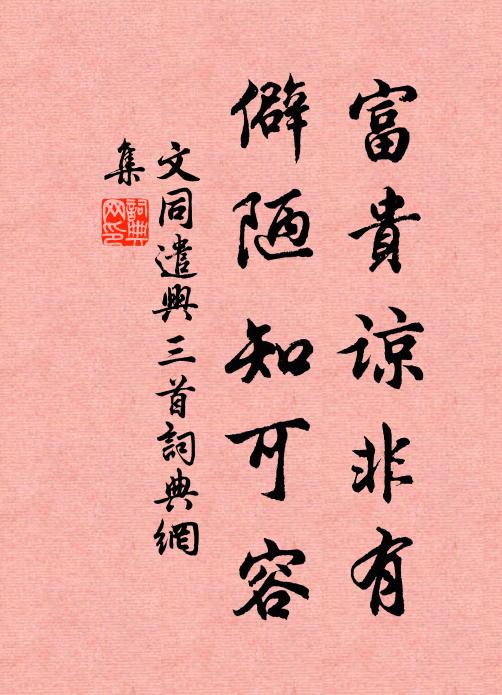 富貴諒非有
僻陋知可容
文同遣興三首詞典網
集
詞典
网印